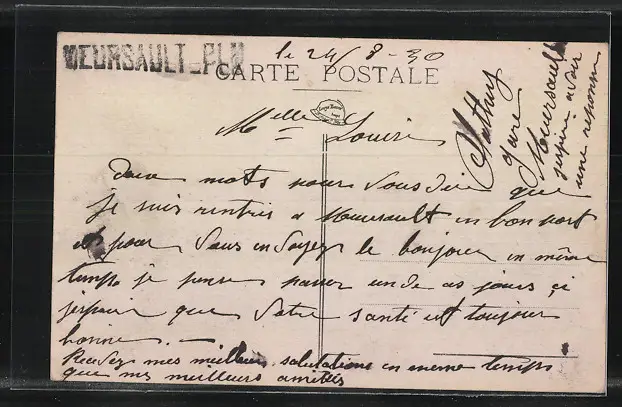 MEURSAULT-PLM
le 24/8-30
CARTE POSTALE
Mathey
gare
Meursault
j'espère avoir
une reponse
Melle Louise
Deux mots pour vous dire que
je suis rentrés a Meursault en bon port
et pour vous envoyez le bonjour en même
temps je pense passer un de ces jours çi
jespair que votre santé est toujour
bonne. —
Recevez mes meilleurs salutations en meme temps
que mes meilleurs amitiés